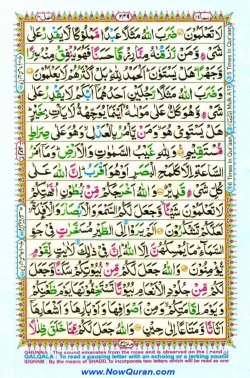 النحل ١٦
٢٤٩
لَا تَعْلَمُونَ ضَرَبَ اللّٰهُ مَثَلًا عَبْدًا مَّمْلُوكًا لَّا يَقْدِرُ عَلٰى
شَيْءٍ وَّمَنْ رَّزَقْنٰهُ مِنَّا رِزْقًا حَسَنًا فَهُوَ يُنْفِقُ مِنْهُ سِرًّا
وَّجَهْرًا هَلْ يَسْتَوٗنَ اَلْحَمْدُ لِلّٰهِ بَلْ اَكْثَرُهُمْ لَا يَعْلَمُونَ
وَضَرَبَ اللّٰهُ مَثَلًا رَّجُلَيْنِ اَحَدُهُمَآ اَبْكَمُ لَا يَقْدِرُ عَلٰى
شَيْءٍ وَّهُوَ كَلٌّ عَلٰى مَوْلٰىهُ اَيْنَمَا يُوَجِّهْهُّ لَا يَاْتِ بِخَيْرٍ
هَلْ يَسْتَوِيْ هُوَ وَمَنْ يَّاْمُرُ بِالْعَدْلِ وَهُوَ عَلٰى صِرَاطٍ
مُّسْتَقِيْمٍ وَلِلّٰهِ غَيْبُ السَّمٰوٰتِ وَالْاَرْضِ وَمَآ اَمْرُ
السَّاعَةِ اِلَّا كَلَمْحِ الْبَصَرِ اَوْ هُوَ اَقْرَبُ اِنَّ اللّٰهَ عَلٰى
كُلِّ شَيْءٍ قَدِيْرٌ وَاللّٰهُ اَخْرَجَكُمْ مِّنْ بُطُوْنِ اُمَّهٰتِكُمْ
لَا تَعْلَمُوْنَ شَيْئًا وَّجَعَلَ لَكُمُ السَّمْعَ وَالْاَبْصَارَ وَالْاَفْئِدَةَ
لَعَلَّكُمْ تَشْكُرُوْنَ اَلَمْ يَرَوْا اِلَى الطَّيْرِ مُسَخَّرٰتٍ فِيْ جَوِّ
السَّمَآءِ مَا يُمْسِكُهُنَّ اِلَّا اللّٰهُ اِنَّ فِيْ ذٰلِكَ لَاٰيٰتٍ لِّقَوْمٍ
يُّؤْمِنُوْنَ وَاللّٰهُ جَعَلَ لَكُمْ مِّنْ بُيُوْتِكُمْ سَكَنًا وَّجَعَلَ لَكُمْ
مِّنْ جُلُوْدِ الْاَنْعَامِ بُيُوْتًا تَسْتَخِفُّوْنَهَا يَوْمَ ظَعْنِكُمْ وَيَوْمَ
اِقَامَتِكُمْ وَمِنْ اَصْوَافِهَا وَاَوْبَارِهَا وَاَشْعَارِهَآ
اَثَاثًا وَّمَتَاعًا اِلٰى حِيْنٍ وَاللّٰهُ جَعَلَ لَكُمْ مِّمَّا خَلَقَ ظِلٰلًا
GHUNNA : The sound emanates from the nose and is observed on the
QALQALA : To read a pausing letter with an echoing or a jerking sound
IDGHAM : By the means of SHADD, to incorporate two letters which will be read as one
www.NowQuran.com